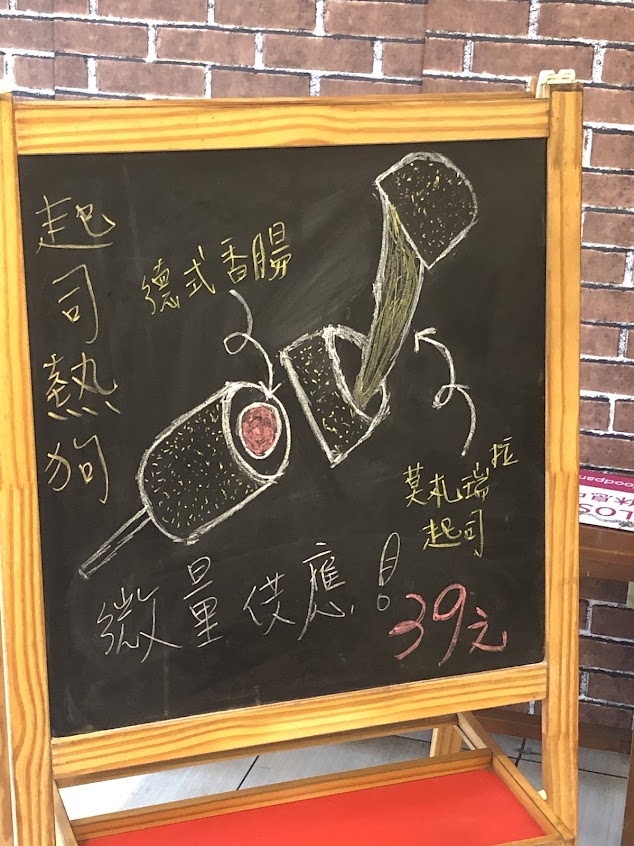 起司熱狗
德式香腸
莫札瑞拉
起司
微量供應！
39元
oodpan
LOS
休息